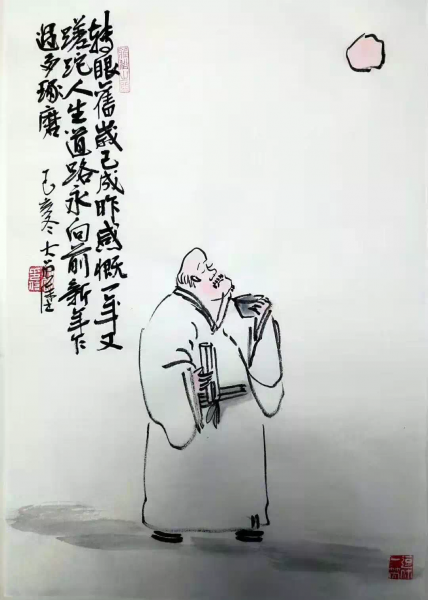 轉眼舊歲已成昨感慨一年又
蹉跎人生道路永向前新年
過多琢磨
己亥冬